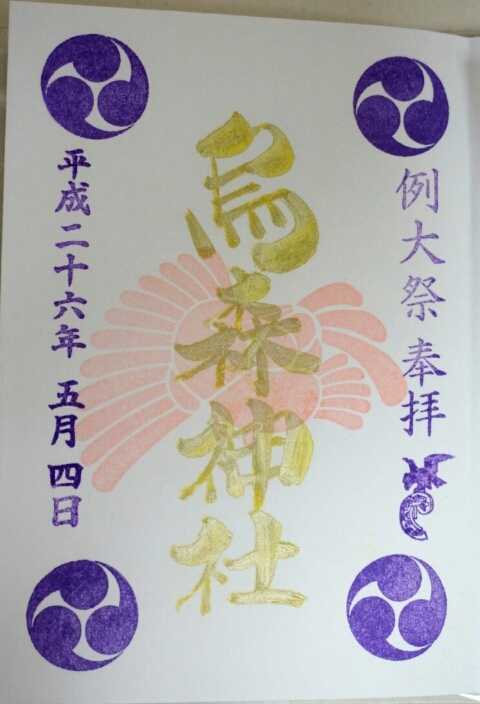 例大祭 奉拝
烏森神社
平成二十六年 五月 四日